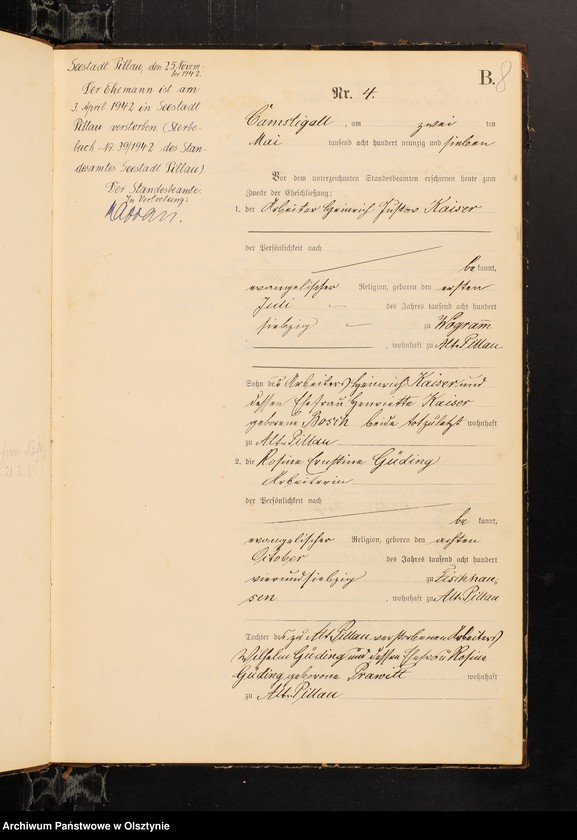 Seestadt Pillau, den 25. Novem-
ber 1942.
Der Ehemann ist am
3. April 1942 in Seestadt
Pillau verstorben (Sterbe-
buch Nr. 39/1942 des Stan-
desamtes Seestadt Pillau)
Der Standesbeamte.
In Vertretung:
B. 8
Nr. 4.
Camstigall, am zwei ten
Mai tausend acht hundert neunzig und sieben
Vor dem unterzeichneten Standesbeamten erschienen heute zum
Zwecke der Eheschließung:
1. der Arbeiter Heinrich Gustav Kaiser
der Persönlichkeit nach
be kannt,
evangelischer Religion, geboren den ersten
Juli des Jahres tausend acht hundert
siebzig zu Wogram
, wohnhaft zu Alt-Pillau
Sohn des Arbeiters Heinrich Kaiser und
dessen Ehefrau Henriette Kaiser
geborene Bosch beide wohnhaft
zu Alt-Pillau
2. die Rosine Ernstine Güding
Arbeiterin
der Persönlichkeit nach
be kannt,
evangelischer Religion, geboren den achten
October des Jahres tausend acht hundert
vierundsiebzig zu Fischhau-
sen , wohnhaft zu Alt-Pillau
Tochter des zu Alt-Pillau verstorbenen Arbeiters
Wilhelm Güding und dessen Ehefrau Rosine
Güding geborene Prawitt wohnhaft
zu Alt-Pillau
Archiwum Państwowe w Olsztynie